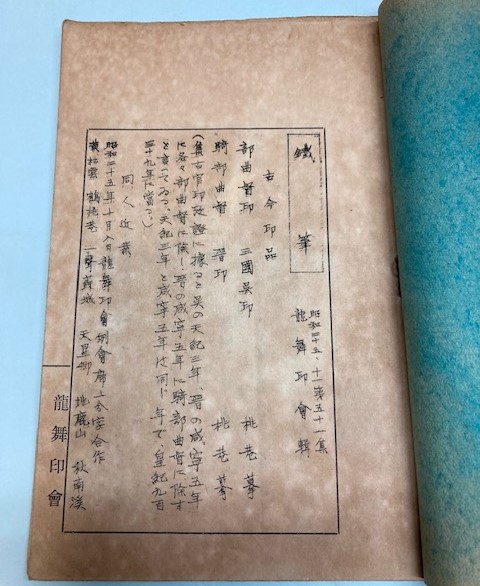 鐵筆
昭和三十五、十一 第五十一集
龍舞印會輯
古今印品
部曲督印 三國吳印 桃巷摹
騎部曲督 晉印 桃巷摹
(集古官印攷證に據ると吳の天記三年、晉の咸寧五年
に各々部曲督に除し晉の咸寧五年に騎部曲督に除す
と言ってゐる、天紀三年と咸寧五年は同じ年で、皇紀九百
三十九年に當つ)
同人近業
昭和三十五年十月八日龍舞印會例會席上各字合作
松雲 鶴桃巷 一 城 天星 地鹿山 秋南溪
龍舞印會